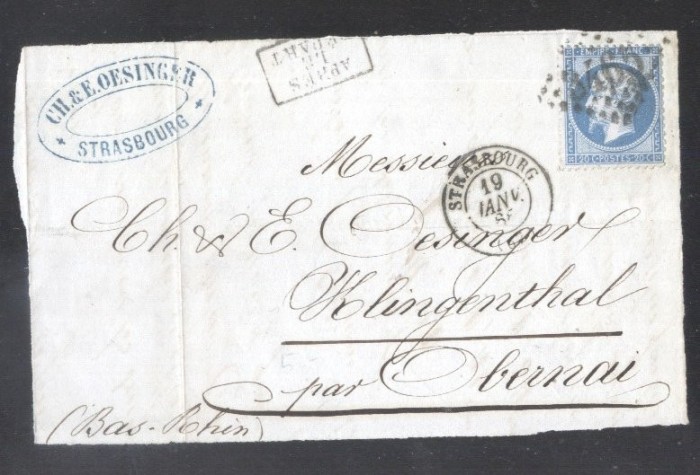 CH. & E. OESINGER
STRASBOURG
APRÈS
LE
DÉPART
EMPIRE FRANC
20 C POSTES 20 C
STRASBOURG
19
JANV.
Messieurs
Ch. & E. Oesinger
Klingenthal
par Obernai
(Bas-Rhin)